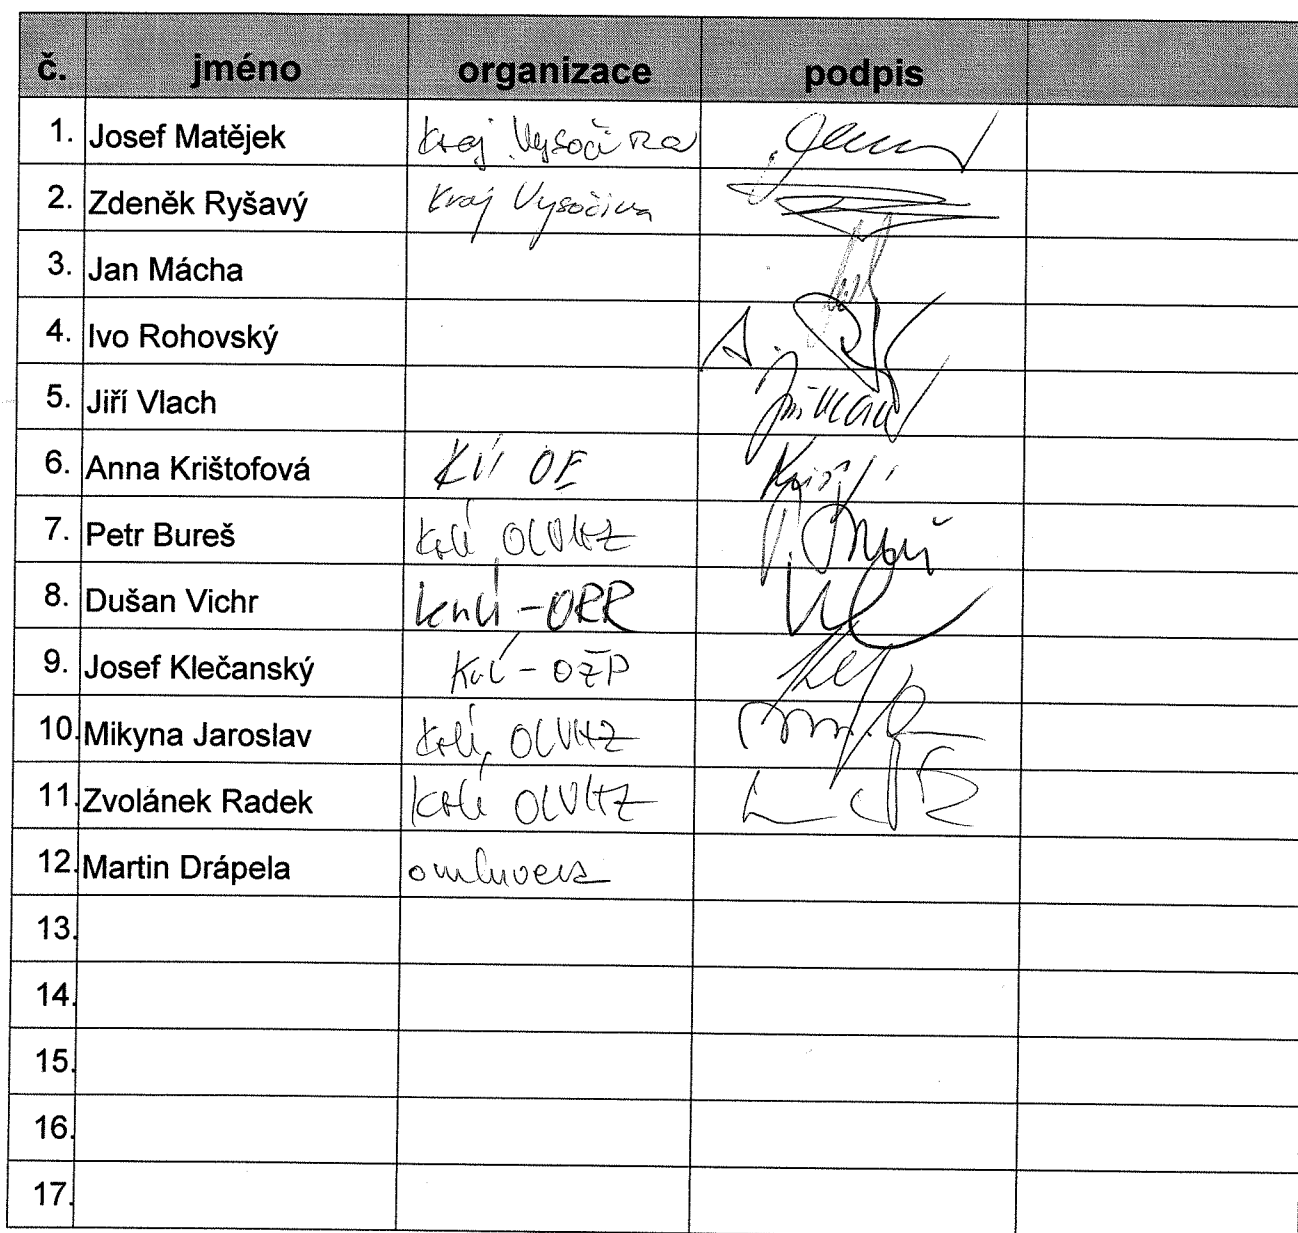 č. jméno organizace podpis
1. Josef Matějek Kraj Vysočina
2. Zdeněk Ryšavý Kraj Vysočina
3. Jan Mácha
4. Ivo Rohovský
5. Jiří Vlach Jiří Vlach
6. Anna Krištofová KÚ OE
7. Petr Bureš KrÚ OLVHZ P. Bureš
8. Dušan Vichr KrÚ - ORR
9. Josef Klečanský KrÚ - OŽP
10. Mikyna Jaroslav KrÚ, OLVHZ
11. Zvolánek Radek KrÚ OLVHZ
12. Martin Drápela omluven
13.
14.
15.
16.
17.